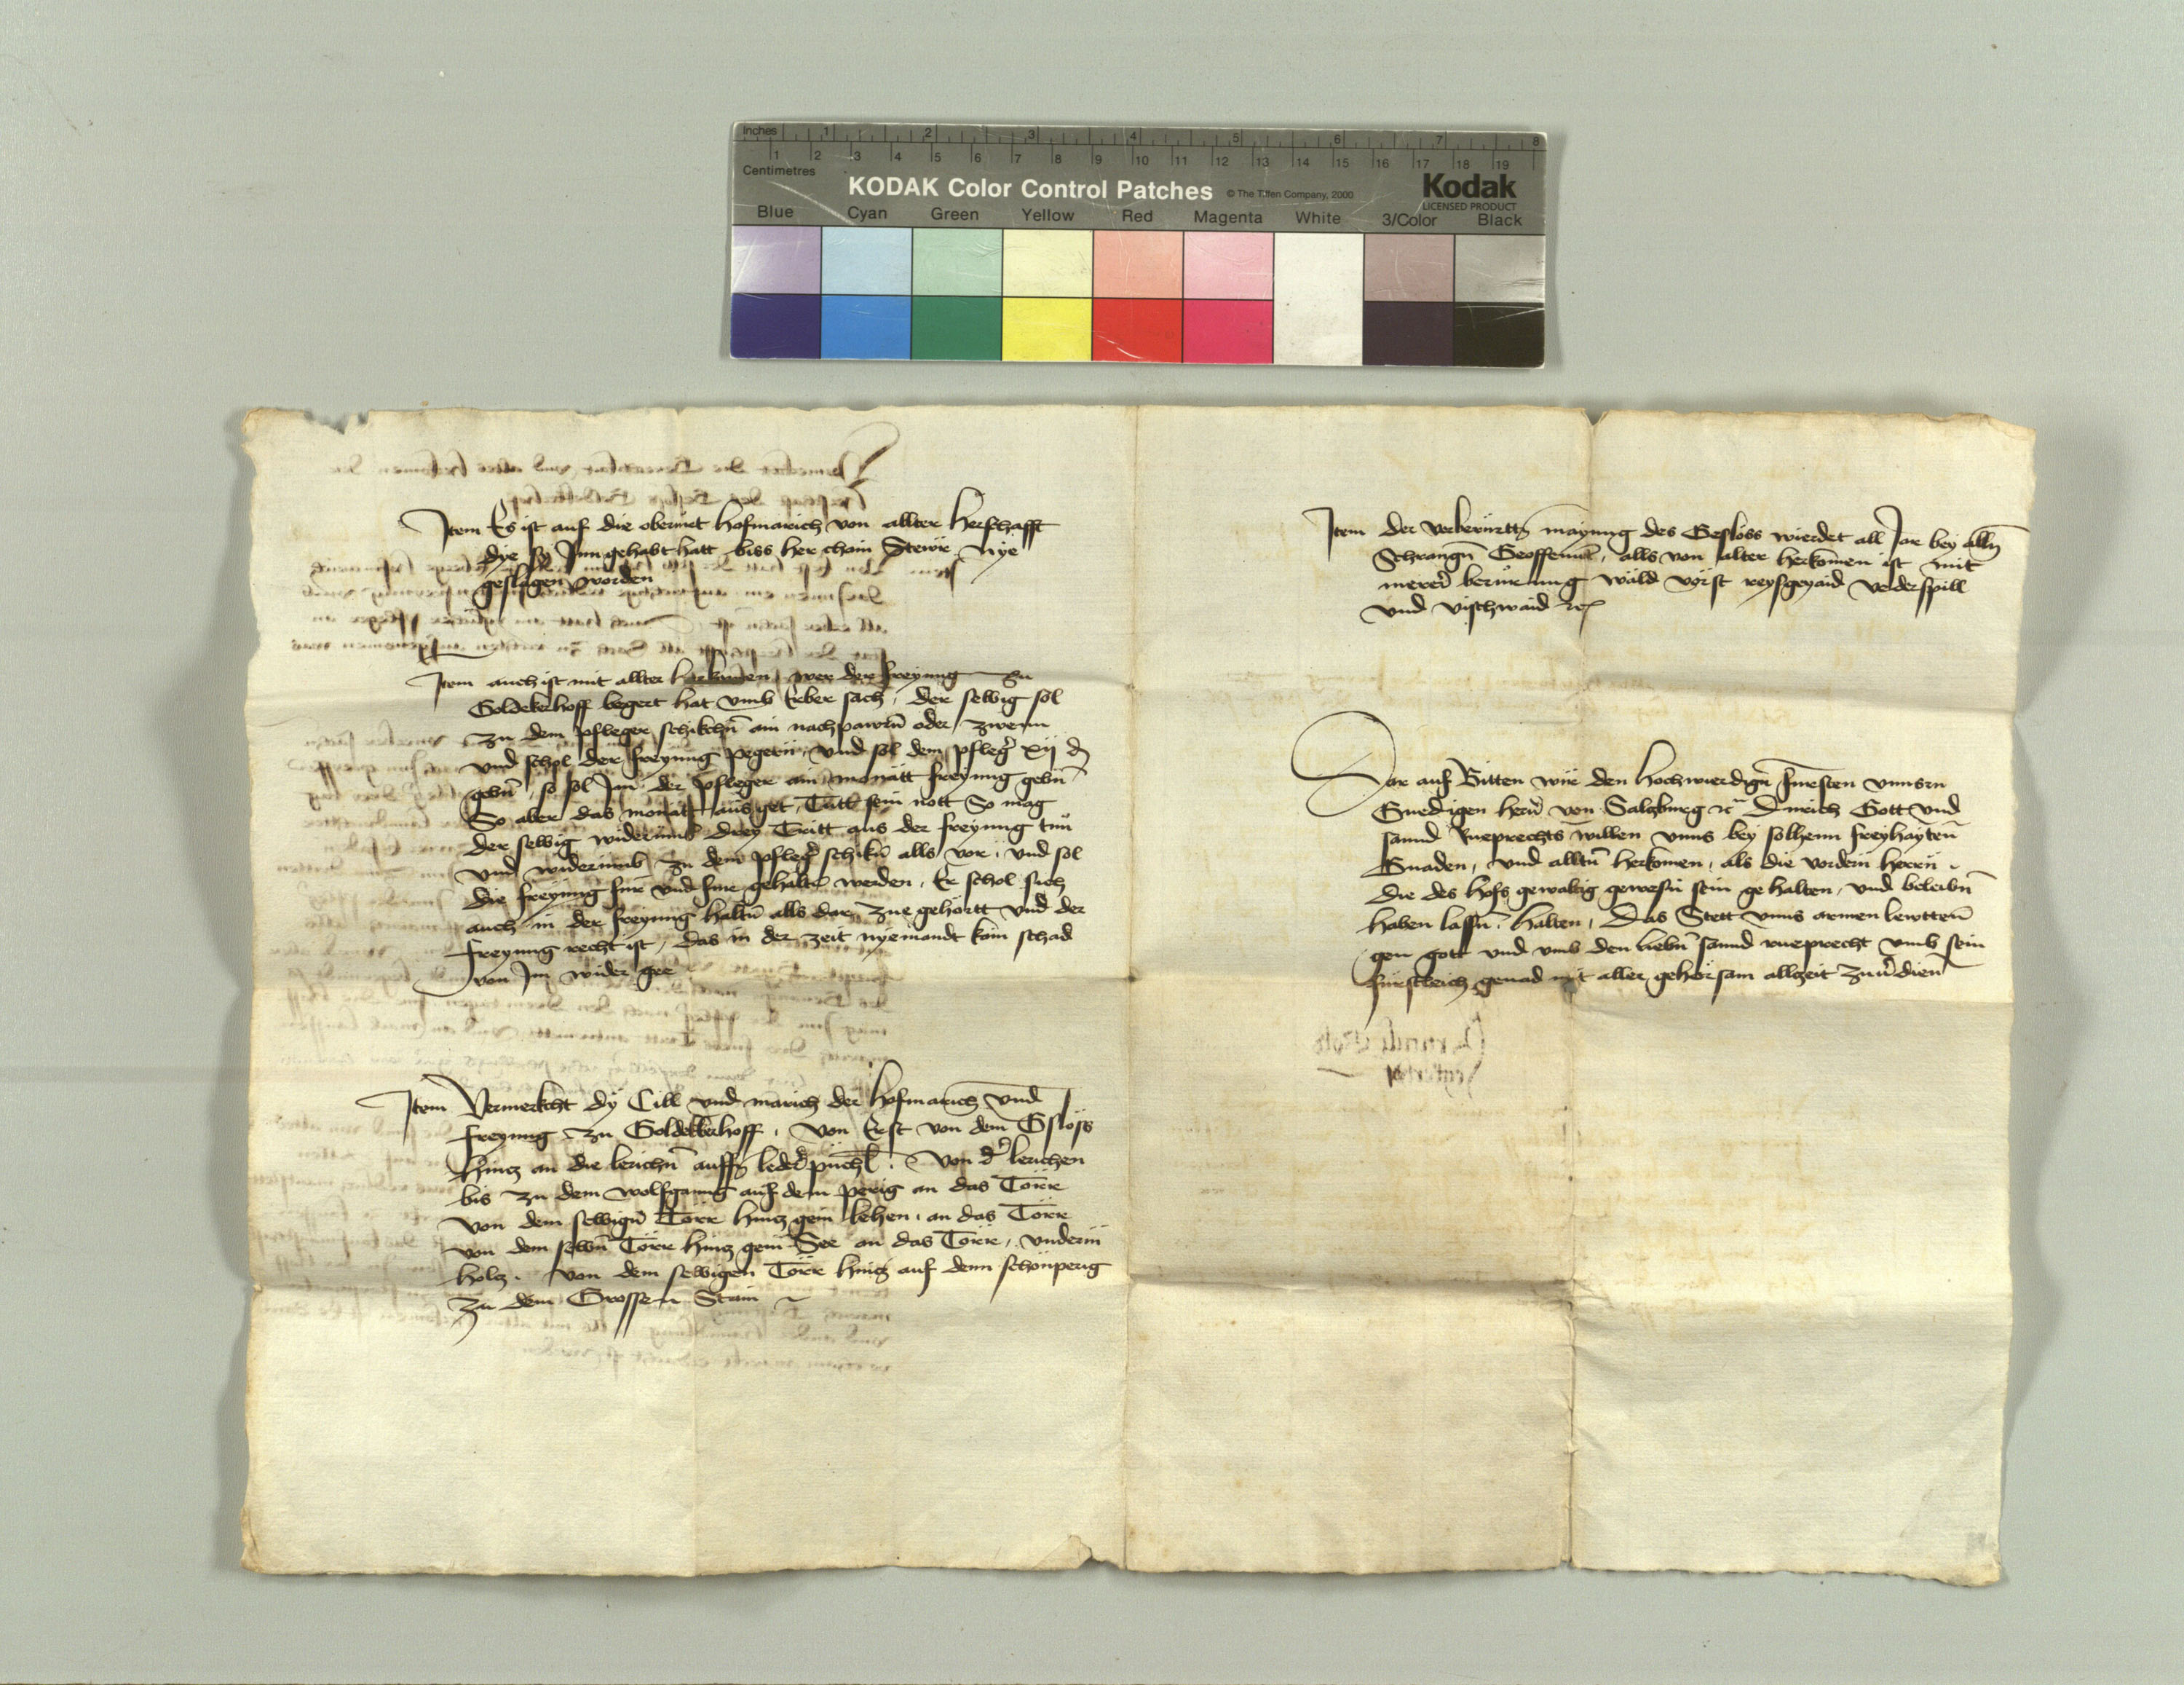 Inches 1 2 3 4 5 6 7 8
1 2 3 4 5 6 7 8 9 10 11 12 13 14 15 16 17 18 19
Centimetres
KODAK Color Control Patches © The Tiffen Company, 2000 Kodak
LICENSED PRODUCT
Blue Cyan Green Yellow Red Magenta White 3/Color Black
Item Es ist auf die obermet hofmarich von allter herschafft
dye sy Inn gehabt hatt biss her chain Stewr nye
geslagen worden
Item auch ist mit allter herkomen wer der freyung zu
Goldekerhoff begert hat vmb Erber sach, der selbig sol
zu dem pfleger schikchn̄ ain nachpawrn̄ oder zwenn
vnd schol der freyung pegern vnd sol dem pfleg̉ xij ₰
gebn̄, so sol Im der pfleger ain monatt freyung gebn̄
So aber das monatt aus get, Tutt sein nott So mag
der selbig widerumb drey Tritt aus der freyung tun
vnd widerumb zu dem pfleg̉ schikn̄ alls vor, vnd sol
die freyung fur vnd fur gehaltn̄ werden, Er schol sich
auch in der freyung haltn̄ alls dar zue gehortt vnd der
freyung recht ist, das in der zeit nyemandt kain schad
von Im wider gee
Item Vermerkcht dy Cill vnd march der hofmarich vnd
freyung zu Goldekkerhoff, von Erst von dem Gsloss
hincz an die lerichn̄ auff leder̉ puchl. Von d̉ lerichen
bis zu dem wolfgannng auf dem perig an das Torr
von dem selbign̄ Torr hincz gein lehen, an das Torr
von dem selbn̄ Torr hincz gein See an das Torr, vnderm
holcz. von dem selbigen Torr hincz auf denn schonperig
zu dem Grossenn Stain
Item der vorberurttn̄ maynung des Gesloss wierdet all Jar bey alln̄
Schrangn̄ Geoffennt, alls von alter herkomen ist mit
merer̄ berurung wäld vörst reysgeyaid vederspill
vnd vischwaid ꝛc
Dar auf Bitten wir den hochwierdign̄ fursten vnnsrn
Gnedigen herrn̄ von Salczburg ꝛc Durich Gott vnd
sannd Rueprechts willen vnns bey solhenn freyhaytenn
Gnaden, vnd alltn̄ herkomen, als die vordern herrn
die des hofs gewaltig gewesn̄ sein ge halten, vnd beleibn̄
haben lassn̄, halten, Das Stett vnns armen lewttenn
gen gott vnd vmb den liebn̄ sannd rueprecht vmb sein
furstleich genad mit aller gehorsam allzeit zuu̓dien̄